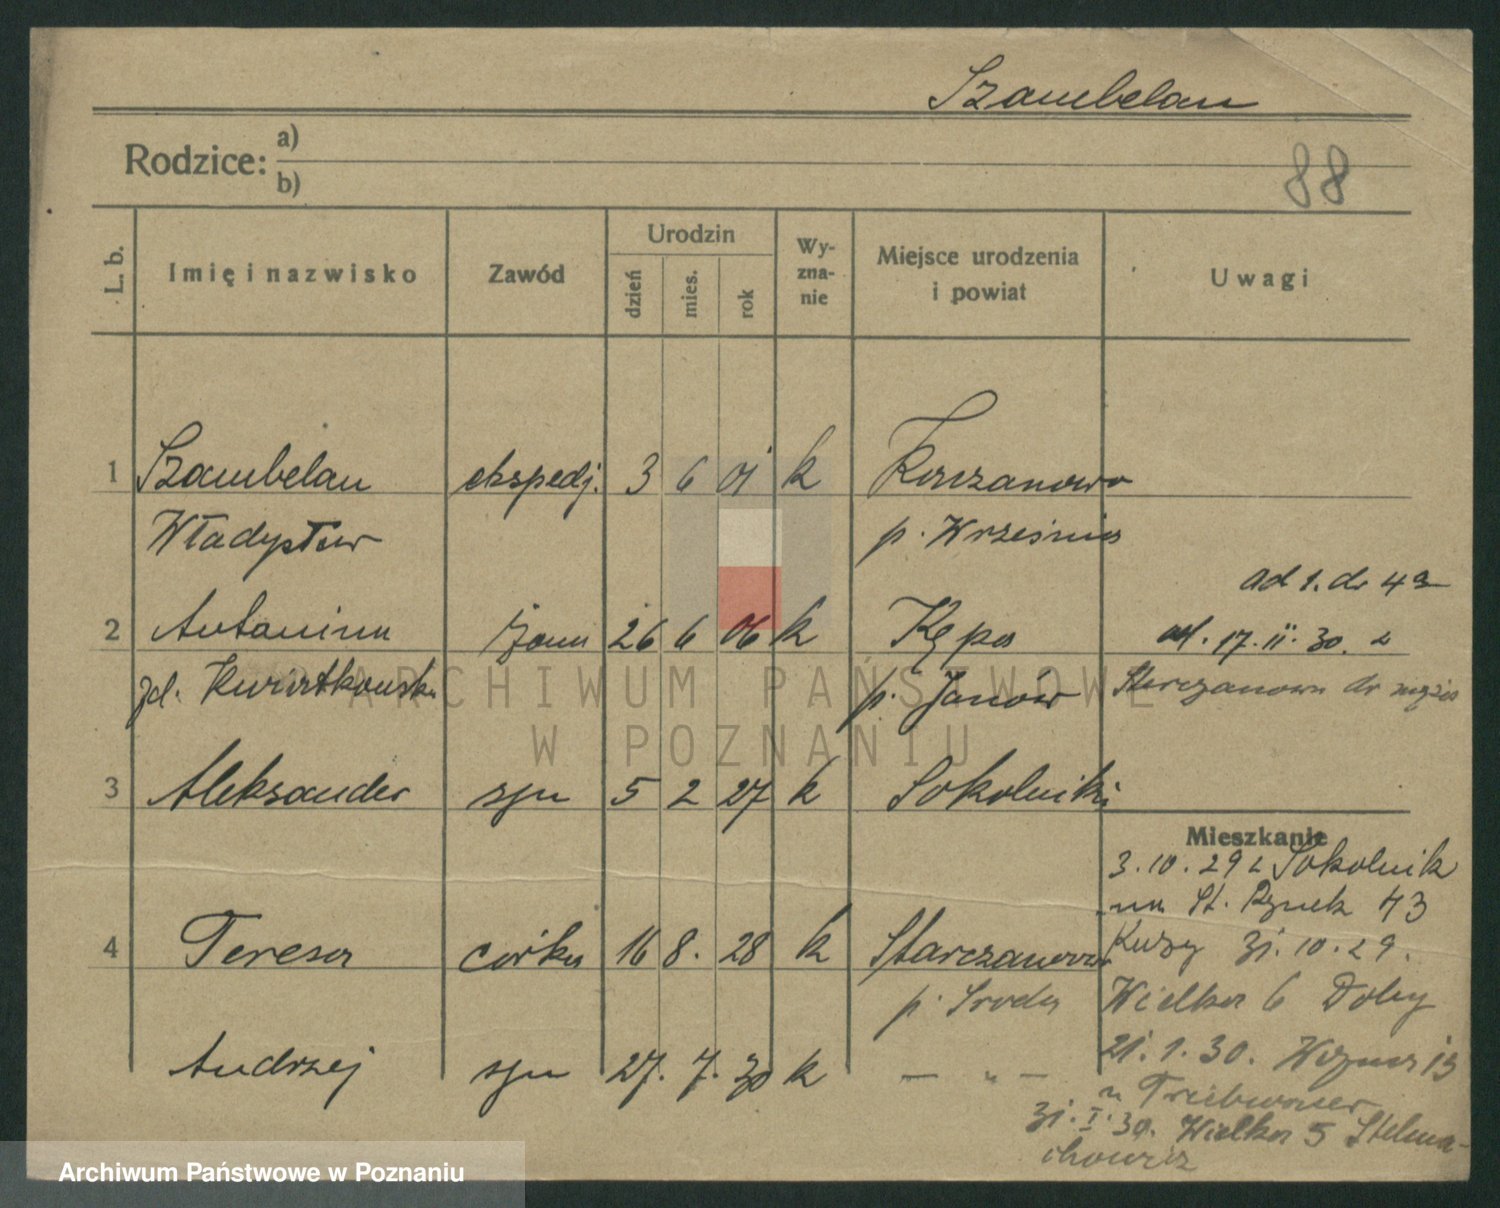 Szambelan
Rodzice: a)
b)
88
L. b. Imię i nazwisko Zawód Urodzin dzień mies. rok Wyznanie Miejsce urodzenia i powiat Uwagi
1 Szambelan ekspedj. 3 6 01 k
Władysław p. Września
ad 1. dr 43
2 Antonina żona 26 6 06 k Kępa
17. II. 30. z
zd. Kwiatkowska p. Janów Starczanowa do męża
ARCHIWUM PAŃSTWOWE
W POZNANIU
3 Aleksander syn 5 2 27 k Sokolniki
Mieszkanie
3. 10. 29 z Sokolnik
na St. Rynek 43
4 Teresa córka 16 8. 28 k Starczanowo
31. 10. 29.
p. Środa Wielka 6
21. 1. 30.
Andrzej syn 27. 7. 30 k — " —
31. I. 30. Wielka 5 Stelmachowicz
Archiwum Państwowe w Poznaniu